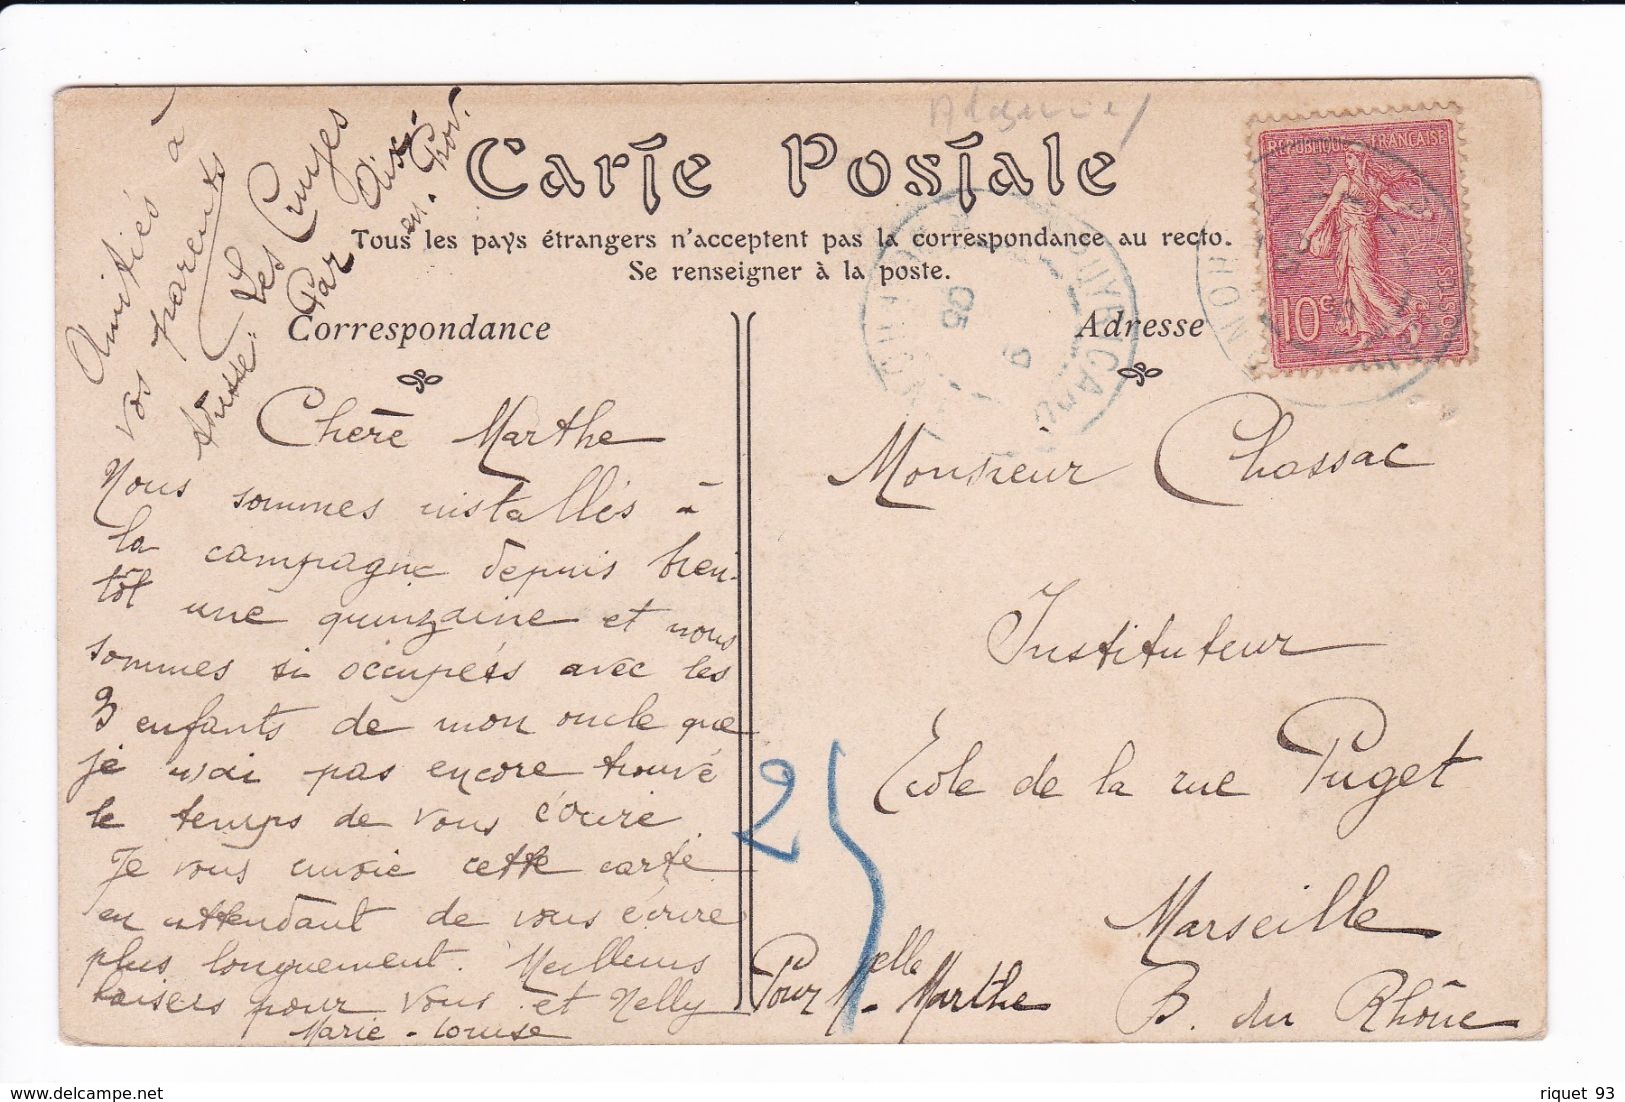 Carte Postale
Tous les pays étrangers n'acceptent pas la correspondance au recto.
Se renseigner à la poste.
Correspondance
Adresse
REPUBLIQUE FRANÇAISE
10c
POSTES
05
Amitiés à
vos parents
Adresse: Les Cruyes
Par Aix-
en-Prov.
Chère Marthe
Nous sommes installés à
la campagne depuis bien-
tôt une quinzaine et nous
sommes si occupées avec les
3 enfants de mon oncle que
je n'ai pas encore trouvé
le temps de vous écrire
Je vous envoie cette carte
en attendant de vous écrire
plus longuement. Meilleurs
baisers pour vous et Nelly
Marie-Louise
25
Monsieur Chassac
Instituteur
Ecole de la rue Puget
Marseille
B. du Rhône
Pour Melle Marthe
riquet 93